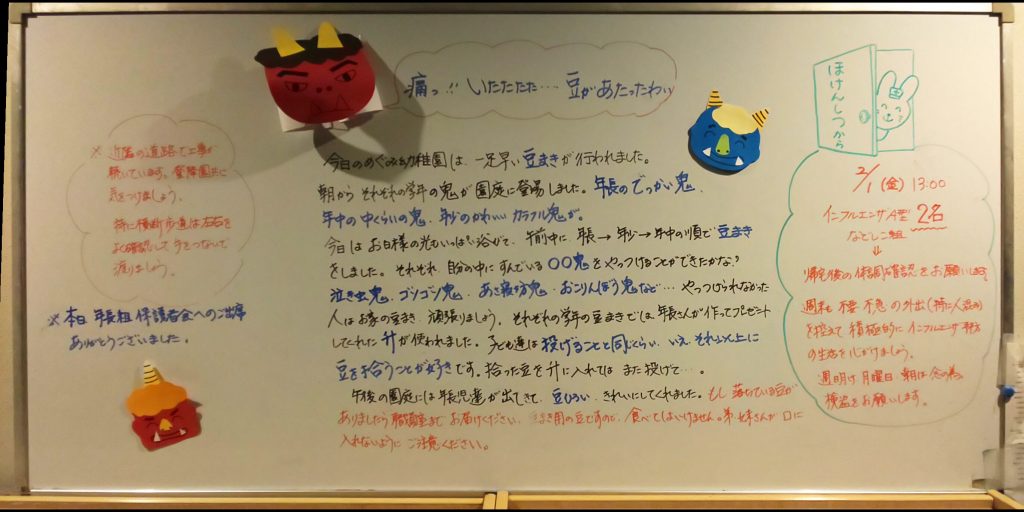 痛っ!! いたたたた… 豆があたったわぃ
今日のめぐみ幼稚園は、一足早い豆まきが行われました。
朝から それぞれの学年の鬼が園庭に登場しました。年長のでっかい鬼、
年中の中くらいの鬼、年少のかわいい カラフル鬼が。
今日は お日様の光もいっぱい浴びて、午前中に、年長→年少→年中の順で 豆まき
をしました。それぞれ、自分の中に すんでいる 〇〇鬼 をやっつけることができたかな?
泣き虫鬼、ゴソゴソ鬼、あさ寝坊鬼、おこりんぼう鬼など… やっつけられなかった
人は お家の豆まき、頑張りましょう。それぞれの学年の豆まきでは、年長さんが 作ってプレゼント
してくれた 升が使われました。子ども達は 投げることと同じくらい、いえ、それ以上に
豆を拾うことが好きです。拾った豆を 升に入れては また 投げて…。
午後の園庭には 年長児達が 出てきて、豆ひろい、きれいにしてくれました。もし 落ちている豆が
ありましたら 職員室まで お届けください。まき用の豆ですので、食べてはいけません。弟妹さんが 口に
入れないように ご注意ください。
※ 近隣の道路で工事が
続いています。登降園共に
気をつけましょう。
特に横断歩道は左右を
よく確認して 手をつないで
渡りましょう。
※本日 年長組 保護者会へのご出席
ありがとうございました。
ほけんしつから
2/1 (金) 13:00
インフルエンザA型 2名
なでしこ組
⇓
帰宅後の体調確認をお願いします。
週末も 不要 不急 の外出(特に人混み)
を控えて 積極的に インフルエンザ 予防
の生活を心がけましょう。
週明け 月曜日 朝は 念の為、
検温をお願いします。